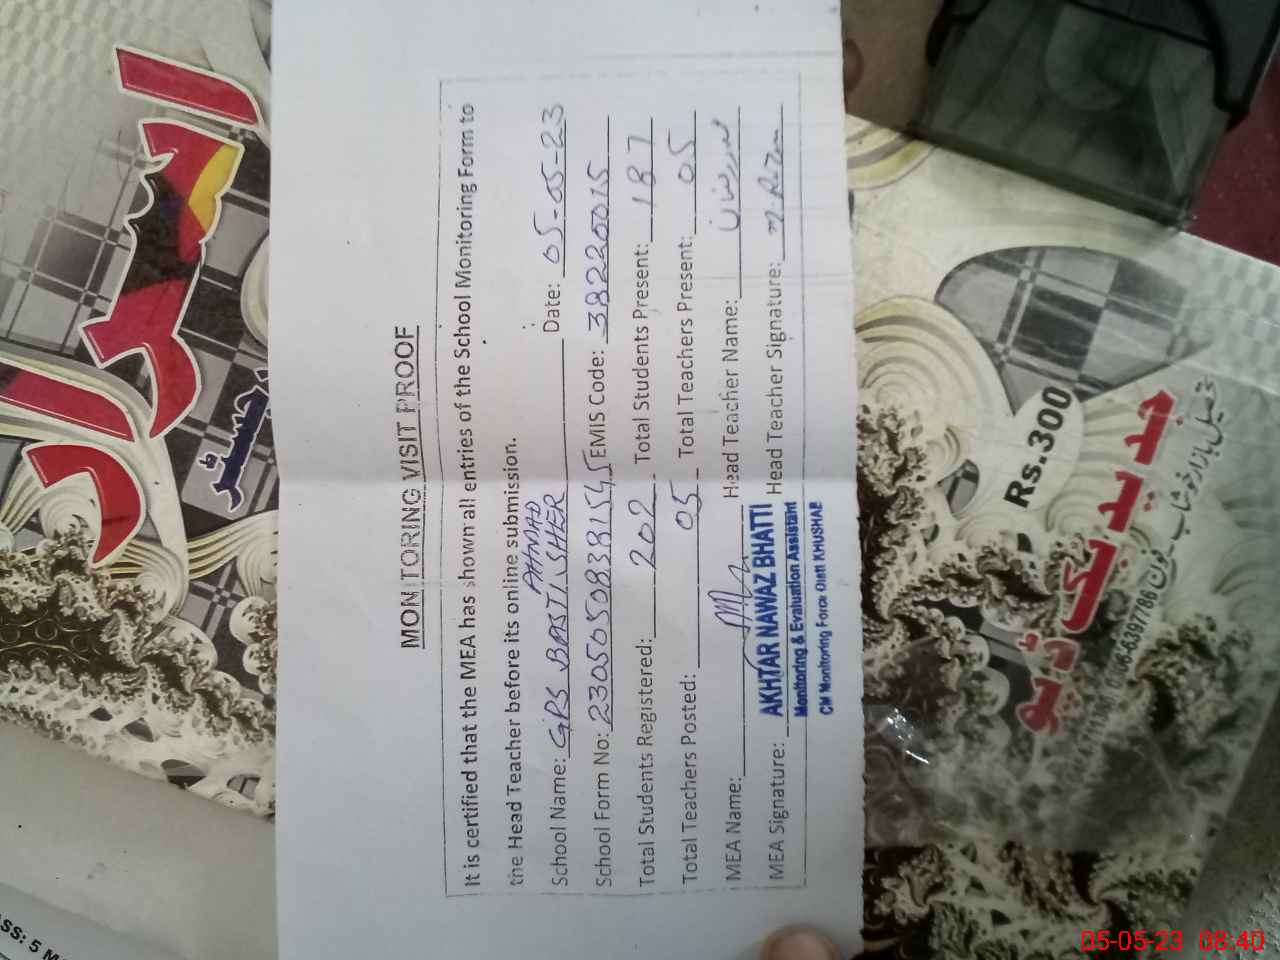 MONITORING VISIT PROOF
It is certified that the MEA has shown all entries of the School Monitoring Form to
the Head Teacher before its online submission.
School Name: GPS BASTI SHER AHMAD Date: 05-05-23
School Form No: EMIS Code: 38220015
Total Students Registered: 202 Total Students Present: 187
Total Teachers Posted: 05 Total Teachers Present: 05
MEA Name: Head Teacher Name:
MEA Signature: Head Teacher Signature:
AKHTAR NAWAZ BHATTI
Monitoring & Evaluation Assistant
CM Monitoring Force Distt KHUSHAB
رجسٹر
Rs.300
جدید بک ڈپو
05-05-23 08:40